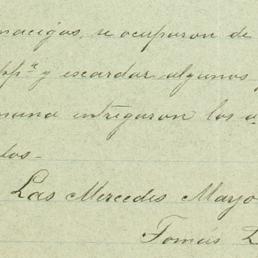 macigas, se ocuparon de
pp.ª y escardar algunos
mana entregaron los a
tos.
Las Mercedes Mayo
Tomás